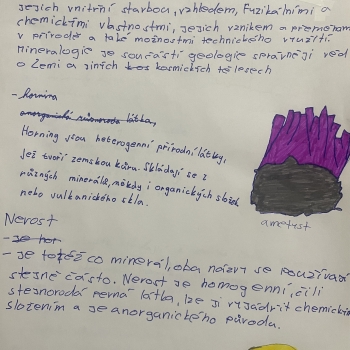 jejich vnitřní stavbou, vzhledem, fyzikálními a
chemickými vlastnostmi, jejich vznikem a přeměnam
v přírodě a také možnostmi technického využití
Mineralogie je součástí geologie správněji věd
o Zemi a jiných kos kosmických tělesech
- hornina
anorganická různorodá látka,
Horniny jsou heterogenní přírodní látky,
jež tvoří zemskou kůru. Skládají se z
různých minerálů, někdy i organických složek
nebo vulkanického skla.
ametyst
Nerost
- je hor
- je totéž co minerál, oba názvy se používají
stejně často. Nerost je homogenní, čili
stejnorodá pevná látka, lze ji vyjádřit chemickým
složením a je anorganického původu.